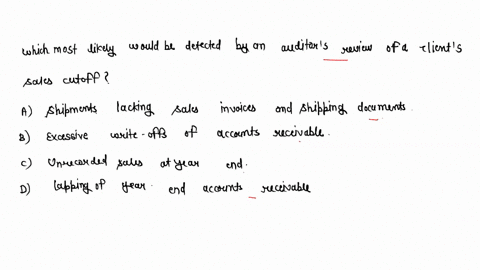 which most likely would be detected by an auditor's review of a client's
sales cutoff?
A) Shipments lacking sales invoices and shipping documents.
B) Excessive write-offs of accounts receivable.
C) Unrecorded sales at year end.
D) lapping of year end accounts receivable